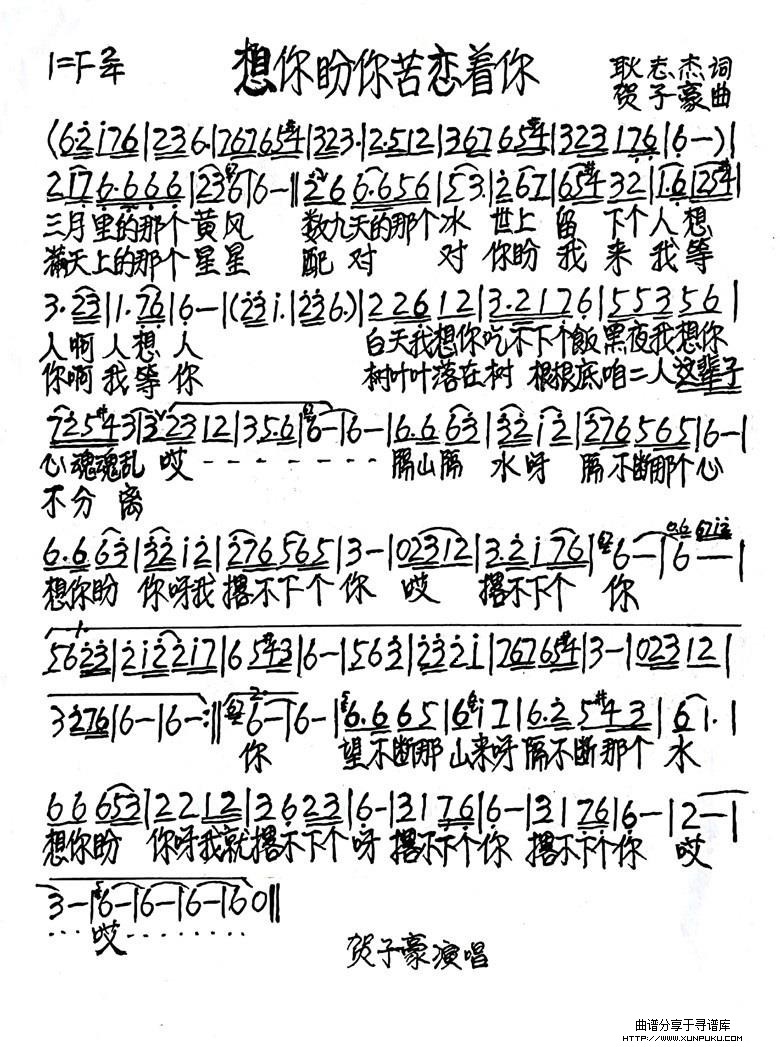 1=F 2/4
想你盼你苦恋着你
耿志杰词
贺子豪曲
(62176|236.|767654|323.|2.512|3676554|323176|6-)|
2176.666|236|6-‖266.656|53.|267|65432|1.61254|
三月里的那个黄风 数九天的那个冰 世上留下个人想
满天上的那个星星 配对对你盼我来我等
3.23|1.76|6-|(231.|236.)|22612|3.2176|553556|
人啊人想人 白天我想你吃不下个飯黑夜我想你
你啊我等你 树叶叶落在树根根底咱二人这辈子
725#43|32312|35.6|6-|6-|6.663|3212|276565|6-|
心魂魂乱 哎 - - - - - - - - 隔山隔水呀 隔不断那个心
不分离
6.663|3212|276565|3-|02312|3.2176|6-|6--|
想你盼你呀我撂不下个你 哎 撂不下个你
5623|212217|6543|6-|563|2321|767654|3-|02312|
3276|6-|6-:‖6-|6-|6.665|617|6.25#43|61.|
你 望不断那山来呀隔不断那个水
66653|2212|3623|6-|3176|6-|3176|6-|2-|
想你盼你呀我就撂不下个呀撂不下个你撂不下个你 哎
3-|6-|6-|6-|60‖
····哎········
贺子豪演唱
曲谱分享于寻谱库
HTTP://WWW.XUNPUKU.COM